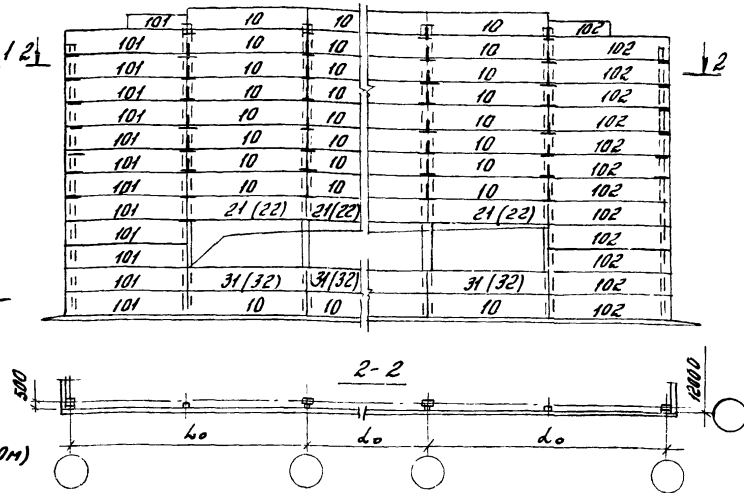 101 10 10 10 102
101 10 10 10 102
1 2 2
101 10 10 10 102
101 10 10 10 102
101 10 10 10 102
101 10 10 10 102
101 10 10 10 102
101 10 10 10 102
101 21 (22) 21(22) 21 (22) 102
101 102
101 102
101 31 (32) 31(32) 31 (32) 102
101 10 10 10 102
2-2
500 12000
Lo Lo Lo
ОМ)